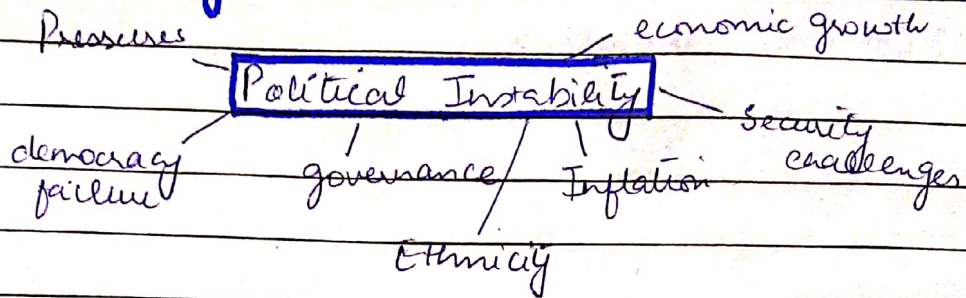 Pressures
economic growth
Political Instability
Security
challenges
democracy
failure
governance
Inflation
Ethnicity